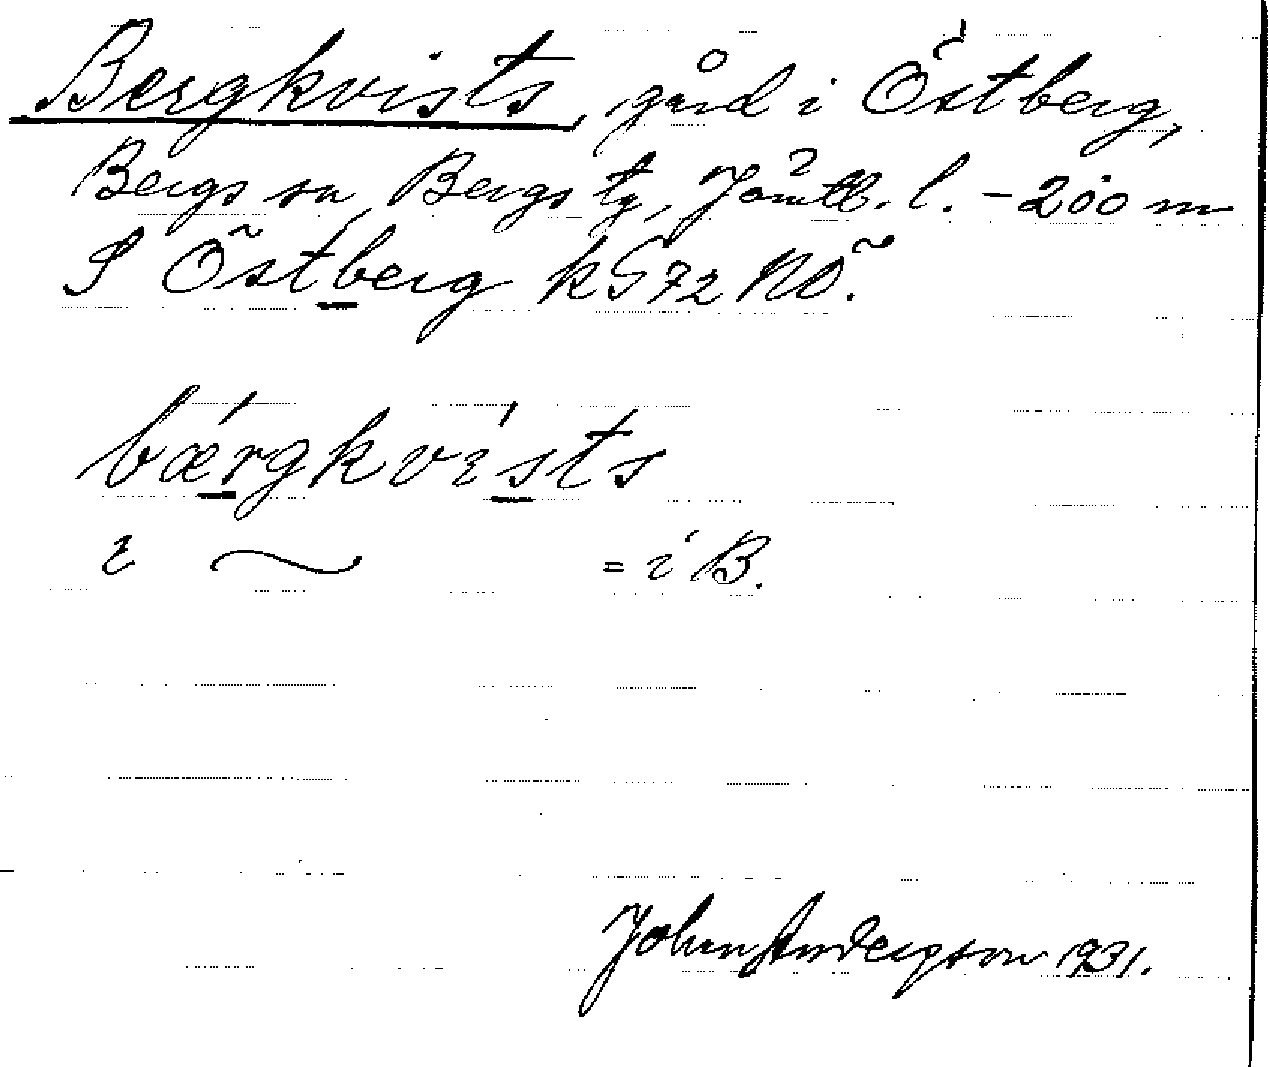 Bergkvists, gård i Östberg,
Bergs sn Bergs tg, Jämtl. l. - 200 m
S Östberg k G 72 NÖ.
bærgkvists
i ~ = i B.
Johan Anderzson 1931.